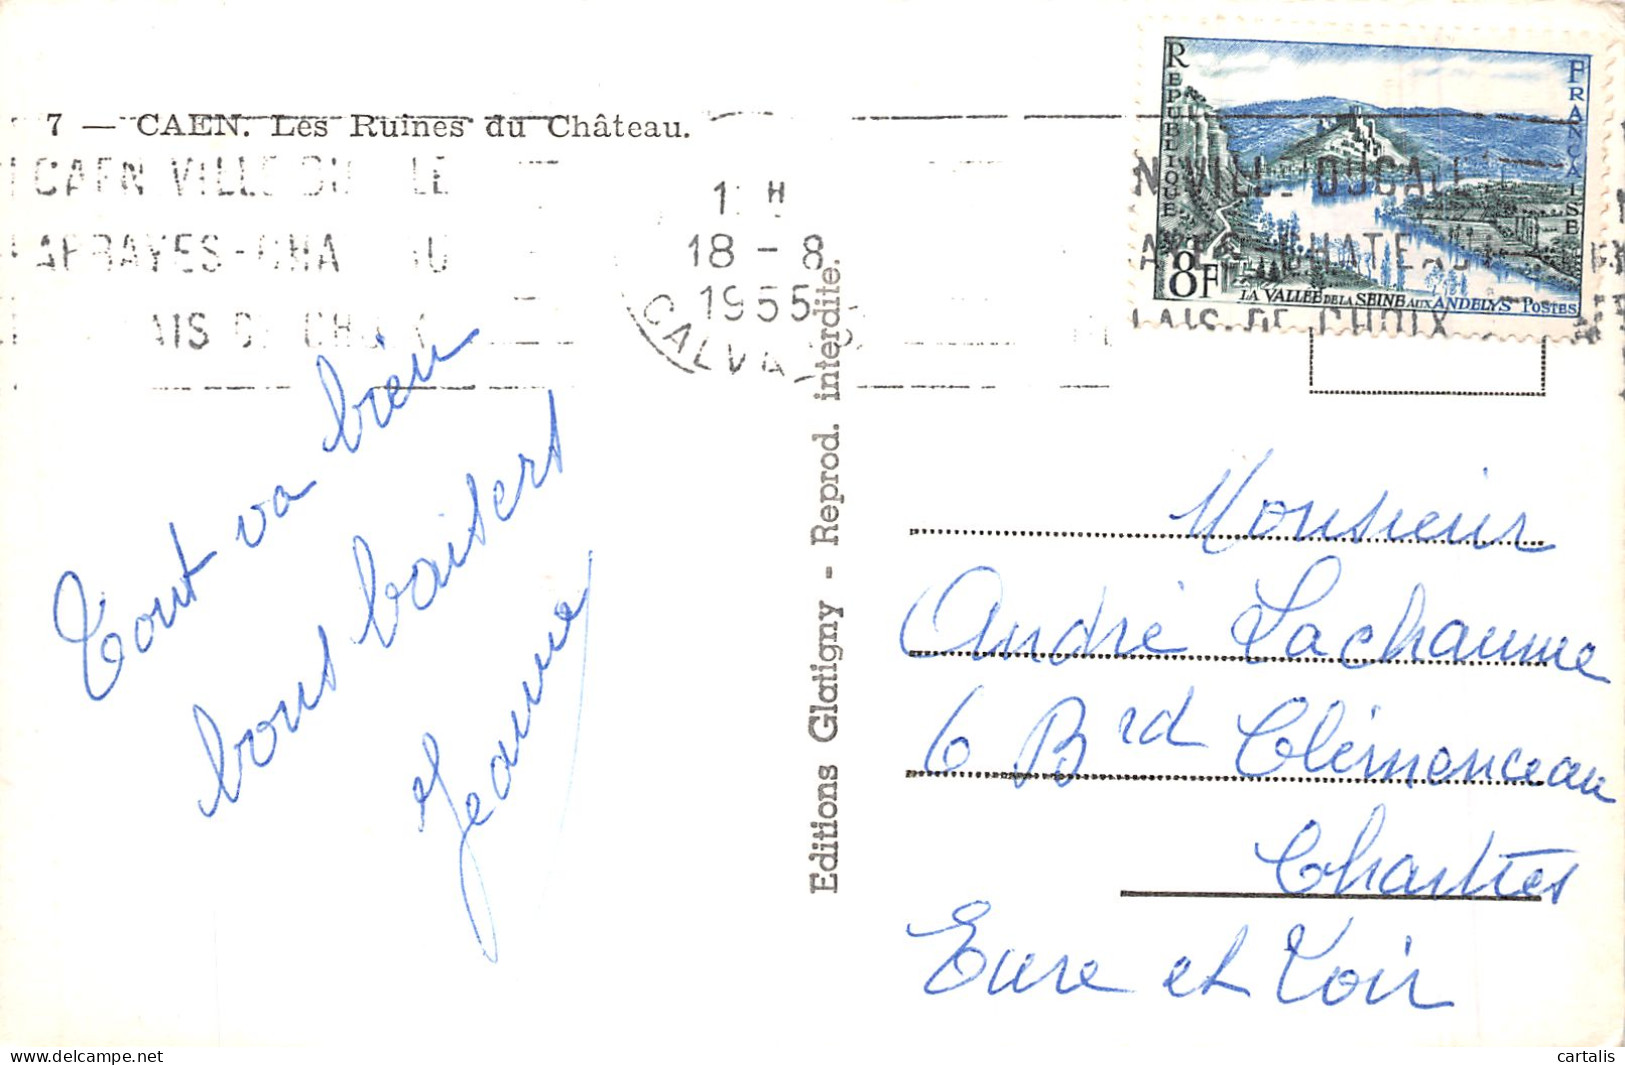 7 — CAEN. Les Ruines du Château.
CAEN VILLE DU LE
ABBAYES - CHA U
AIS DE CHOIX
H
18 - 8
1955
CALVA
N VILLE DUCALE
CHATEAU
LAIS DE CHOIX
REPUBLIQUE FRANÇAISE
8F
LA VALLÉE DE LA SEINE AUX ANDELYS POSTES
Tout va bien
bons baisers
Jeanne
Editions Glatigny - Reprod. interdite.
Monsieur
André Lachaume
6 Brd Clémenceau
Chartres
Eure et Loir
cartalis